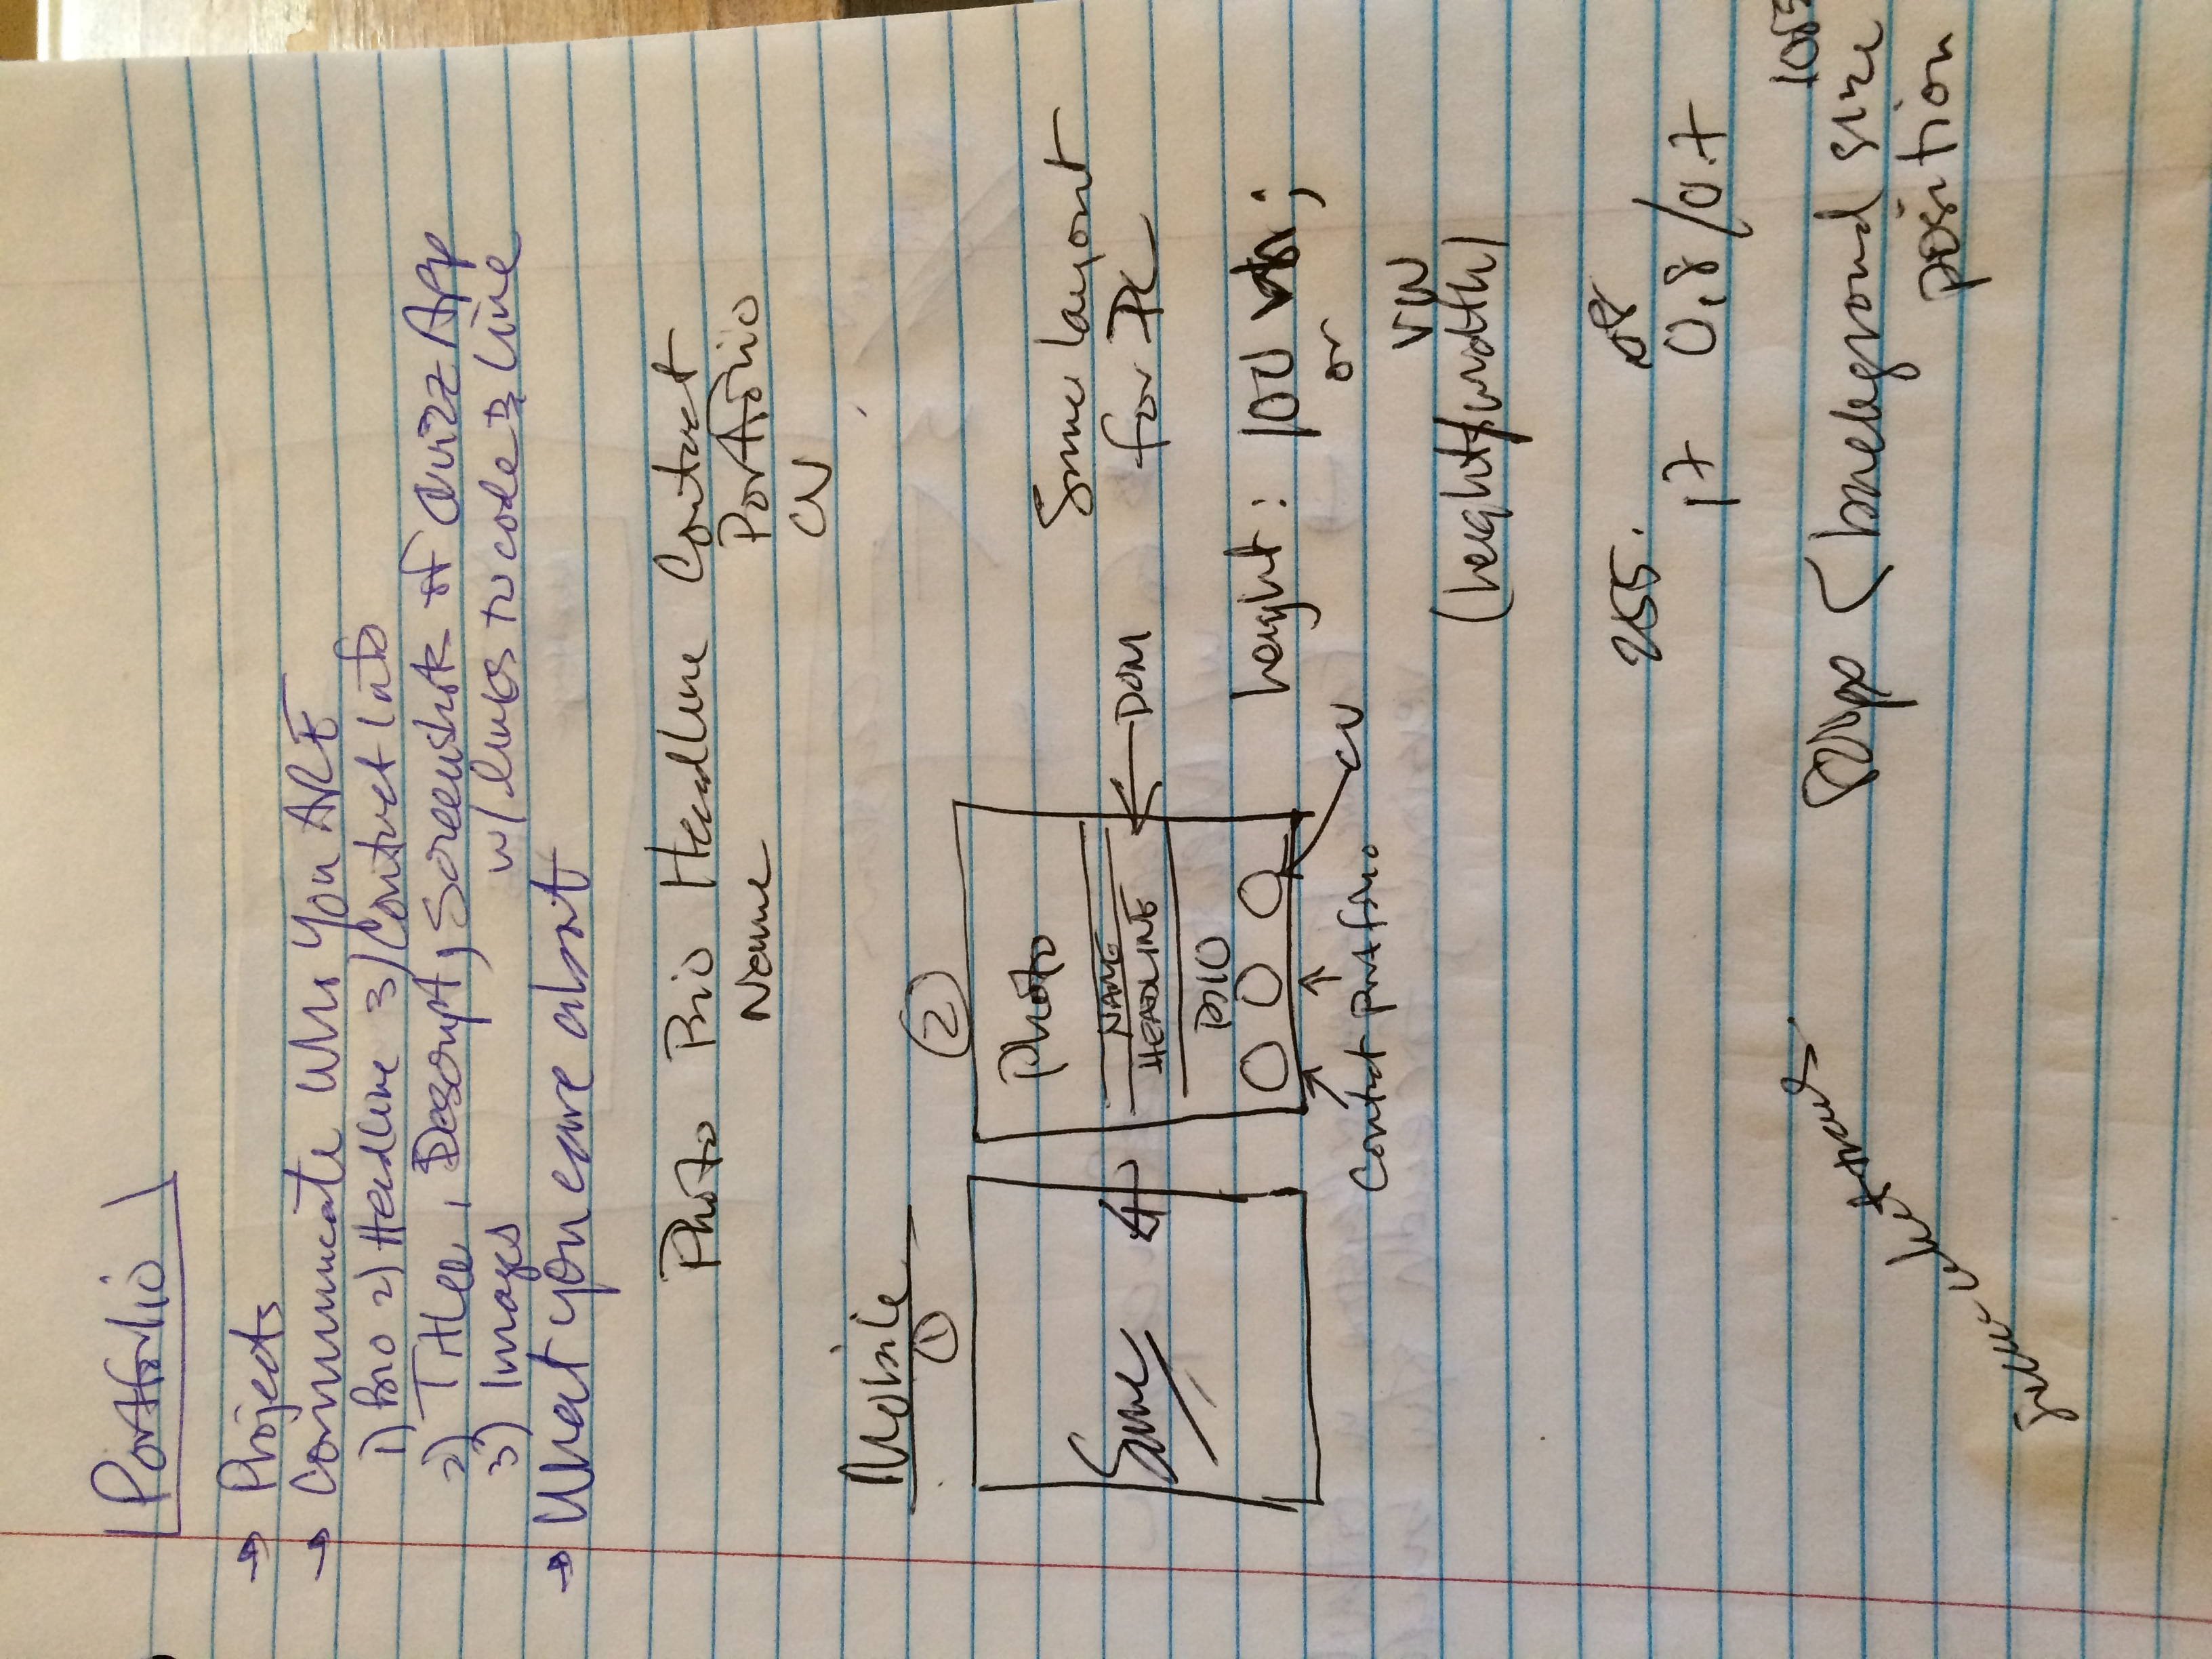 Portfolio
→ Projects
→ Communicate Who You ARE
1) Bio 2) Headline 3) Contact Info
2) Title, Descript, Screenshots of Quizz App
3) Images w/ links to code & live
→ What you care about
Photo Bio Headline Contact
Name Portfolio
CV
Mobile
① ②
Photo
NAME
HEADLINE
BIO
Same
← DOM
Same layout
for PC
height: 100 vh;
or
vw
(height/width)
Contact Portfolio CV
255.
.08
17 0.8/0.7
820px (background size
position